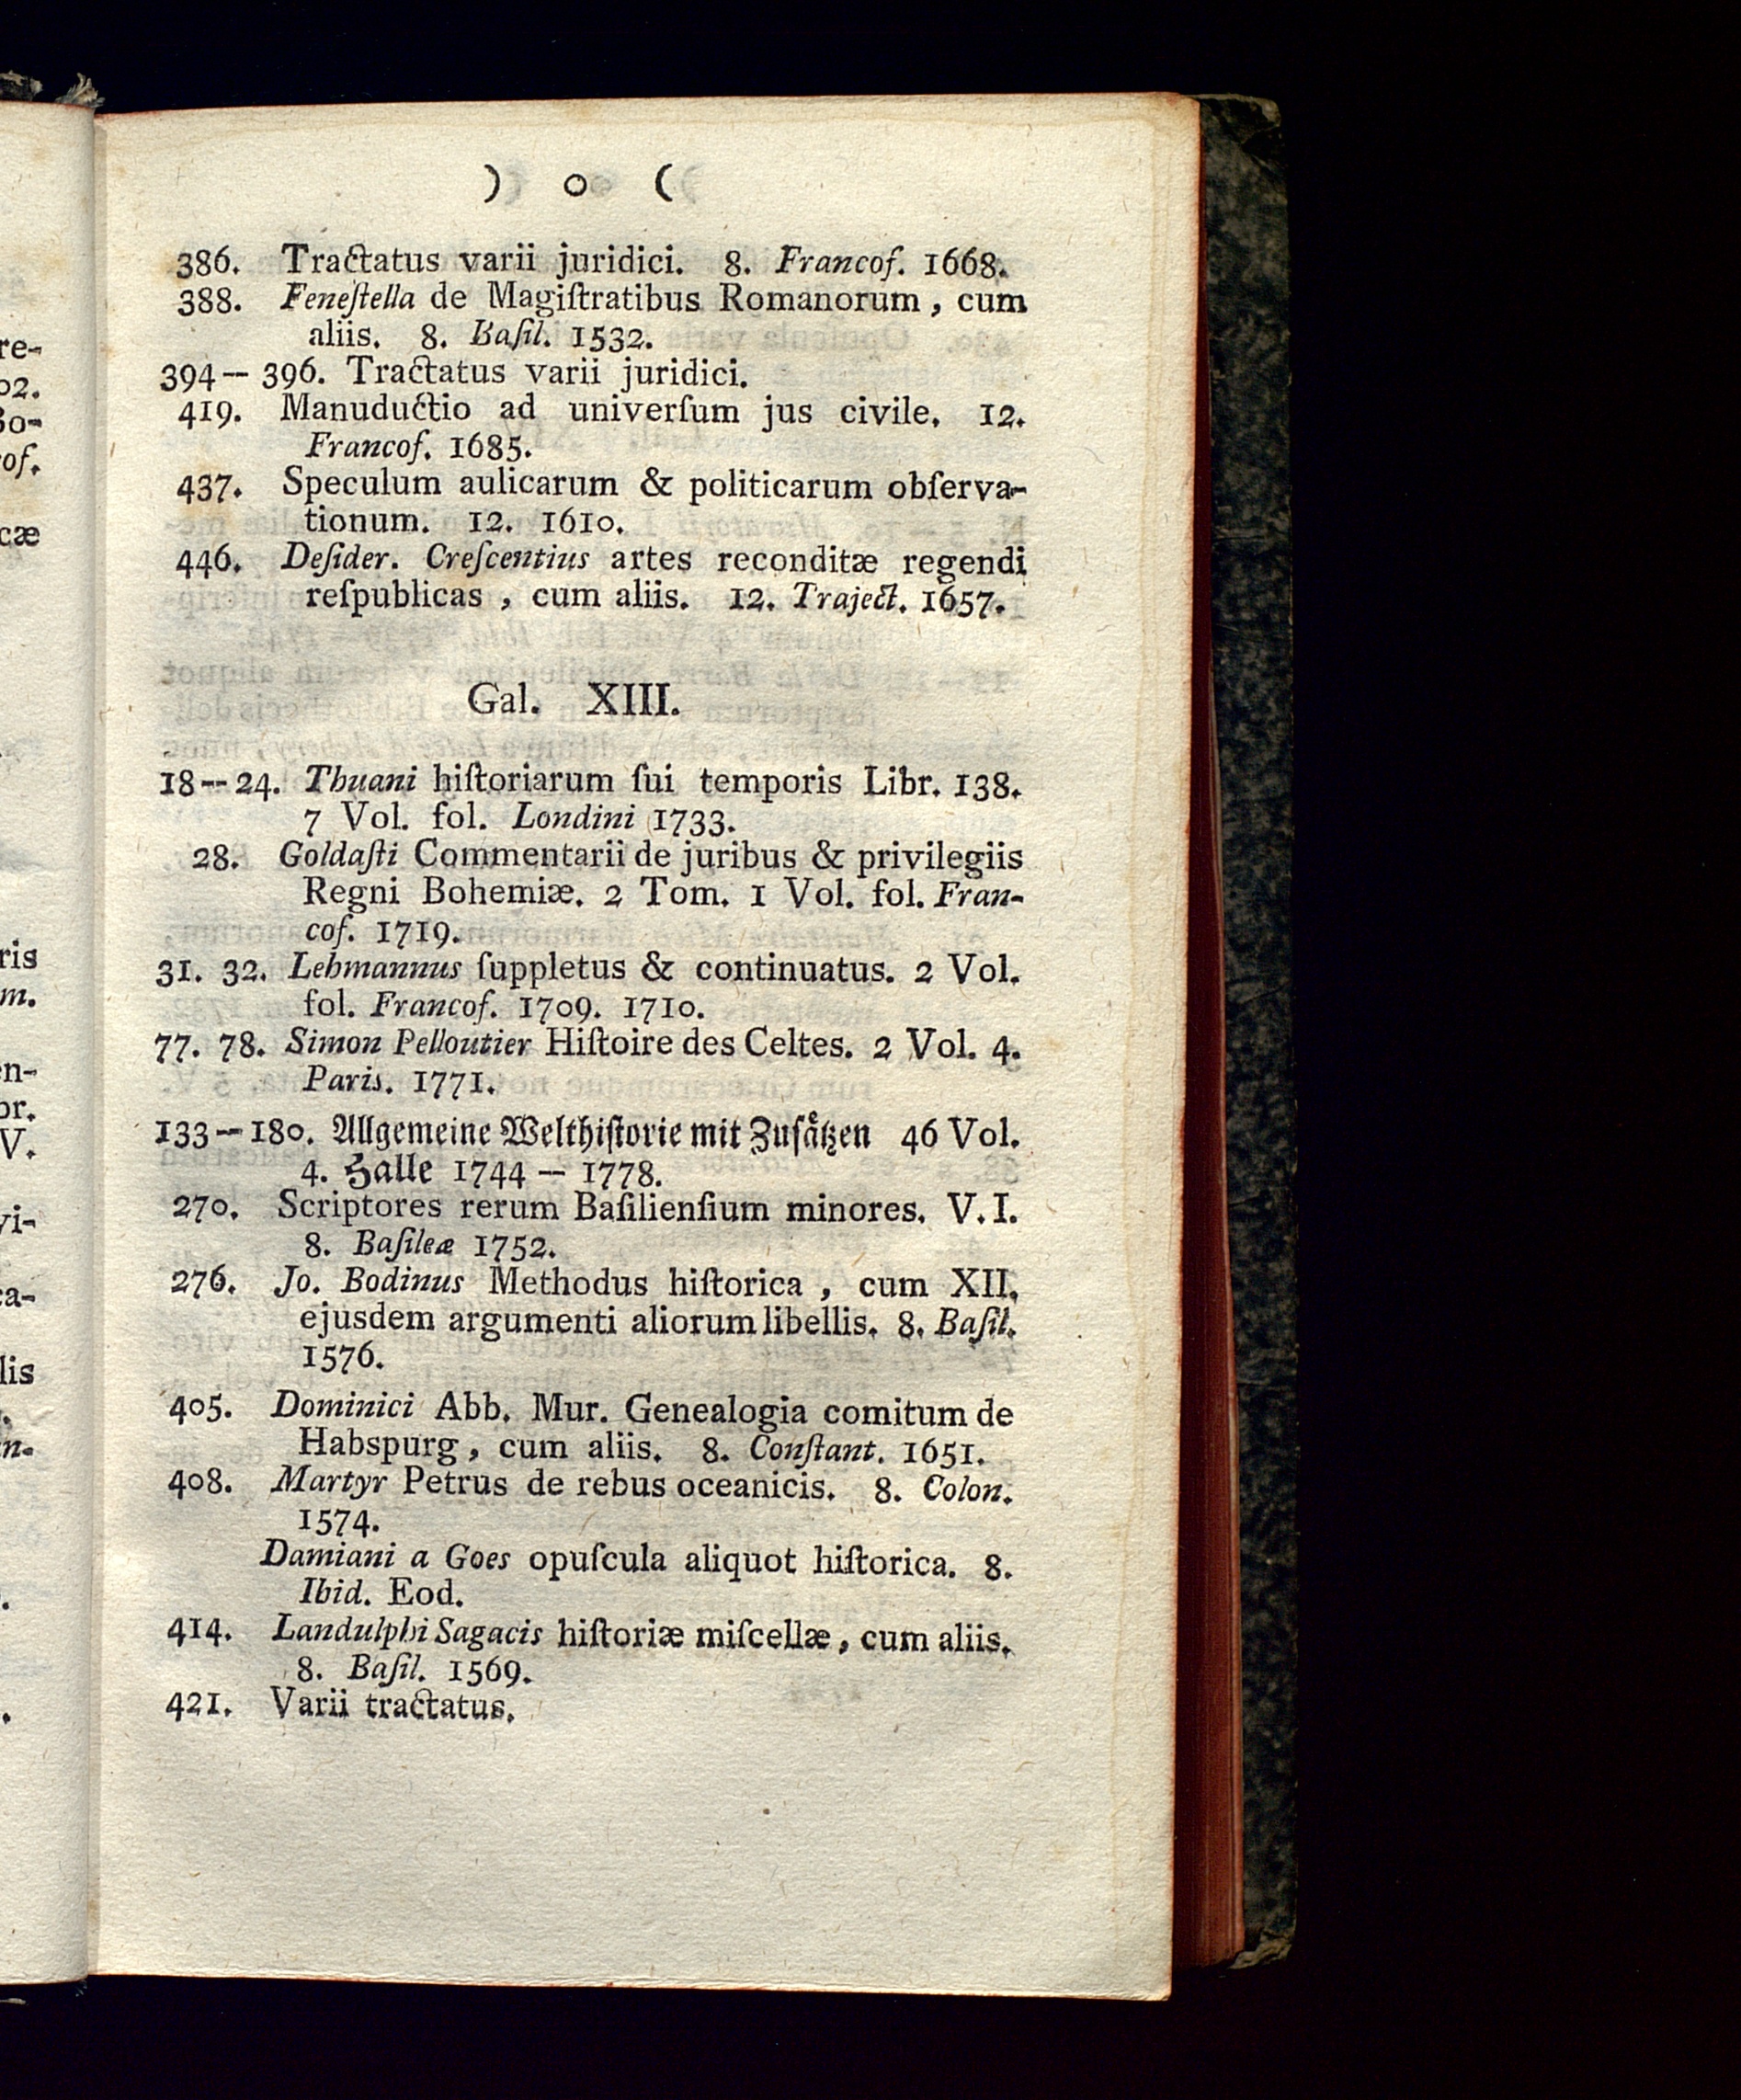 ) o (
386. Tractatus varii juridici. 8. Francoſ. 1668.
388. Feneſtella de Magiſtratibus Romanorum, cum
aliis. 8. Baſil. 1532.
394 — 396. Tractatus varii juridici.
419. Manuductio ad univerſum jus civile. 12.
Francof. 1685.
437. Speculum aulicarum & politicarum obſerva-
tionum. 12. 1610.
446. Deſider. Creſcentius artes reconditæ regendi
reſpublicas, cum aliis. 12. Traject. 1657.
Gal. XIII.
18 — 24. Thuani hiſtoriarum ſui temporis Libr. 138.
7 Vol. fol. Londini 1733.
28. Goldaſti Commentarii de juribus & privilegiis
Regni Bohemiæ. 2 Tom. 1 Vol. fol. Fran-
cof. 1719.
31. 32. Lehmannus ſuppletus & continuatus. 2 Vol.
fol. Francof. 1709. 1710.
77. 78. Simon Pelloutier Hiſtoire des Celtes. 2 Vol. 4.
Paris. 1771.
133 — 180. Allgemeine Welthiſtorie mit Zuſätzen 46 Vol.
4. Halle 1744 — 1778.
270. Scriptores rerum Baſilienſium minores. V. I.
8. Baſileæ 1752.
276. Jo. Bodinus Methodus hiſtorica, cum XII.
ejusdem argumenti aliorum libellis. 8. Baſil.
1576.
405. Dominici Abb. Mur. Genealogia comitum de
Habspurg, cum aliis. 8. Conſtant. 1651.
408. Martyr Petrus de rebus oceanicis. 8. Colon.
1574.
Damiani a Goes opuſcula aliquot hiſtorica. 8.
Ibid. Eod.
414. Landulphi Sagacis hiſtoriæ miſcellæ, cum aliis.
8. Baſil. 1569.
421. Varii tractatus.